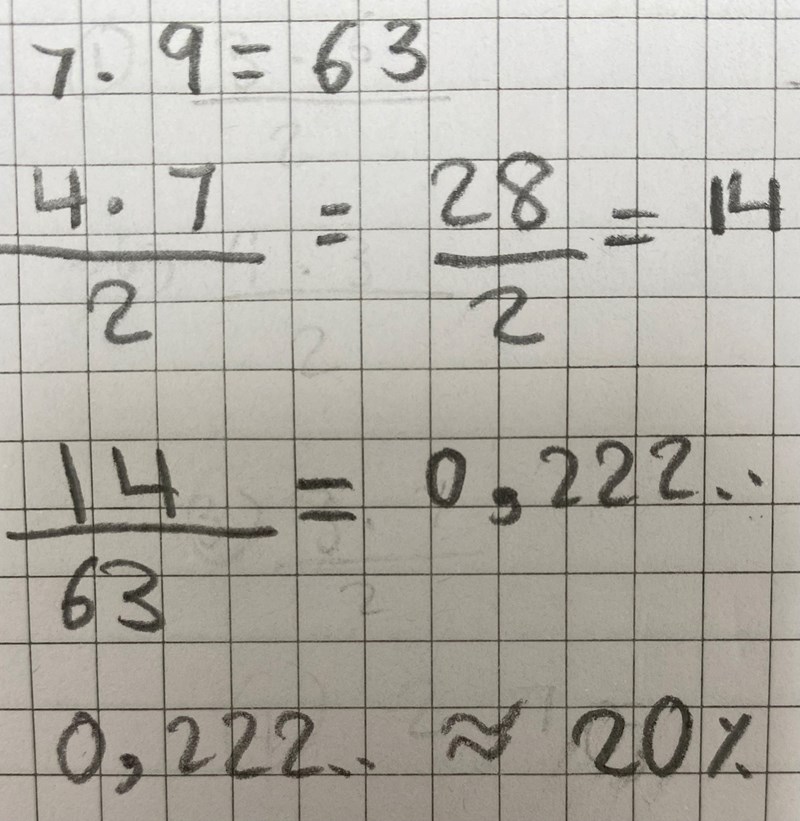 7 · 9 = 63
4 · 7 / 2 = 28 / 2 = 14
14 / 63 = 0,222..
0,222.. ≈ 20%